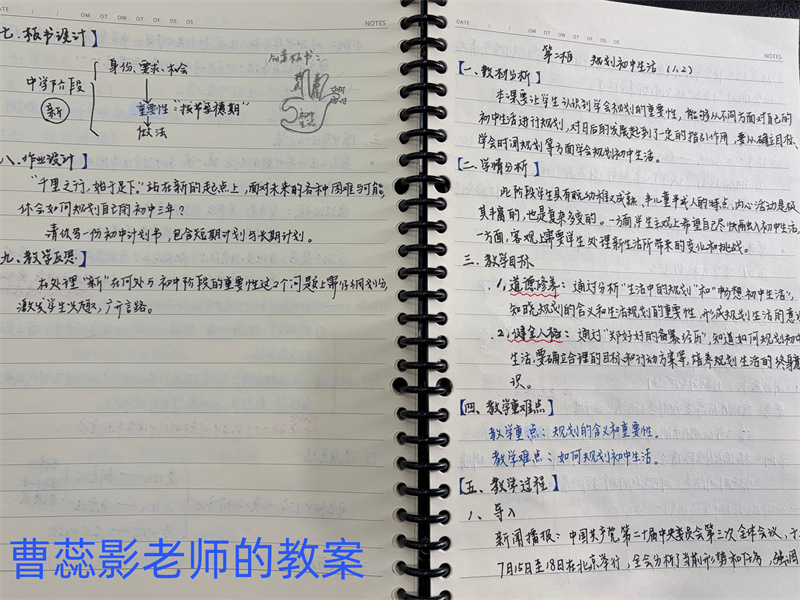 DATE / / OM OT OW OT OF OS OS NOTES
七.板书设计】
身份、要求、机会
中学阶段
新
重要性:"拔节孕穗期"
做法
八.作业设计】
"千里之行,始于足下。"站在新的起点上,面对未来的各种困难与可能,
你会如何规划自己的初中三年?
请你写一份初中计划书,包含短期计划与长期计划。
九.教学反思】
在处理"新"在何处与初中阶段的重要性这2个问题上
激发学生兴趣,广开言路。
DATE / / OM OT OW OT OF OS OS NOTES
第二框 规划初中生活(1,2)
【一、教材分析】
本课要让学生认识到学会规划的重要性,能够从不同方面对自己的
初中生活进行规划,对日后的发展起到了一定的指引作用,要从确立目标、
学会时间规划等方面学会规划初中生活。
【二.学情分析】
此阶段学生具有既幼稚又成熟、半儿童半成人的特点,内心活动是极
其丰富的,也是复杂多变的。一方面学生主观上希望自己尽快融入初中生活,
一方面,客观上需要学生处理新生活所带来的变化和挑战。
三.教学目标
1,道德修养:通过分析"生活中的规划"和"畅想初中生活",
知晓规划的含义和生活规划的重要性,形成规划生活的意
2,健全人格:通过"郑好好的备赛经历",知道如何规划初中
生活,要确立合理的目标和行动方案等,培养规划生活的终身意
识。
【四、教学重难点】
教学重点:规划的含义和重要性。
教学难点:如何规划初中生活。
【五、教学过程】
1、导入
新闻播报:中国共产党第二十届中央委员会第三次全体会议,于
7月15日至18日在北京举行,全会分析了当前形势和任务,强调
曹蕊影老师的教案